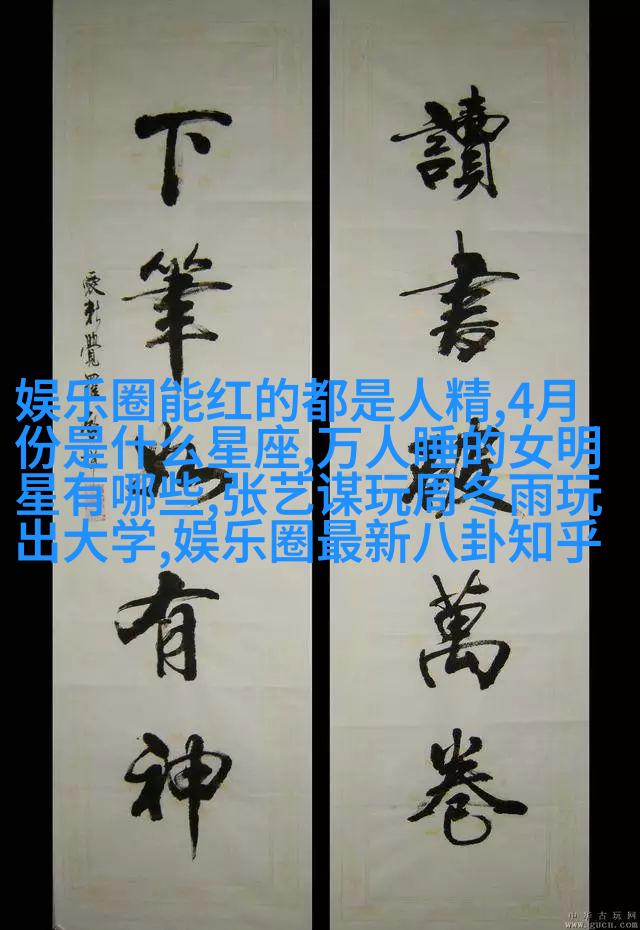 讀書破萬卷
下筆如有神
愛新覺羅
娱乐圈能红的都是人精,4月
份是什么星座,万人睡的女明
星有哪些,张艺谋玩周冬雨玩
出大学,娱乐圈最新八卦知乎
中华古玩网
www.gucn.com